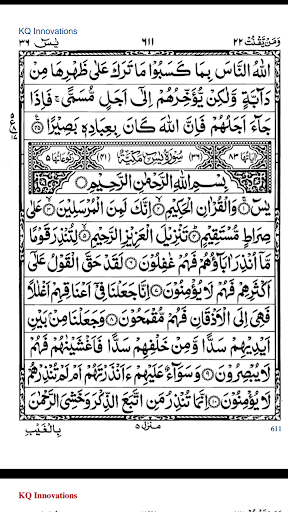 KQ Innovations
وَمَنْ يَّقْنُتْ ٢٢ ٦١١ يٰسٓ ٣٦
اللهُ النَّاسَ بِمَا كَسَبُوْا مَا تَرَكَ عَلٰى ظَهْرِهَا مِنْ
دَآبَّةٍ وَّلٰكِنْ يُّؤَخِّرُهُمْ اِلٰٓى اَجَلٍ مُّسَمًّى ۚ فَاِذَا
جَآءَ اَجَلُهُمْ فَاِنَّ اللهَ كَانَ بِعِبَادِهٖ بَصِيْرًا ﴿٤٥﴾
اٰيَاتُهَا ٨٣ (٣٦) سُوْرَةُ يٰسٓ مَكِّيَّةٌ (٤١) رُكُوْعَاتُهَا ٥
بِسْمِ اللهِ الرَّحْمٰنِ الرَّحِيْمِ
يٰسٓ ﴿١﴾ وَالْقُرْاٰنِ الْحَكِيْمِ ﴿٢﴾ اِنَّكَ لَمِنَ الْمُرْسَلِيْنَ ﴿٣﴾ عَلٰى
صِرَاطٍ مُّسْتَقِيْمٍ ﴿٤﴾ تَنْزِيْلَ الْعَزِيْزِ الرَّحِيْمِ ﴿٥﴾ لِتُنْذِرَ قَوْمًا
مَّآ اُنْذِرَ اٰبَآؤُهُمْ فَهُمْ غٰفِلُوْنَ ﴿٦﴾ لَقَدْ حَقَّ الْقَوْلُ عَلٰٓى
اَكْثَرِهِمْ فَهُمْ لَا يُؤْمِنُوْنَ ﴿٧﴾ اِنَّا جَعَلْنَا فِيْٓ اَعْنَاقِهِمْ اَغْلٰلًا
فَهِيَ اِلَى الْاَذْقَانِ فَهُمْ مُّقْمَحُوْنَ ﴿٨﴾ وَجَعَلْنَا مِنْۢ بَيْنِ
اَيْدِيْهِمْ سَدًّا وَّمِنْ خَلْفِهِمْ سَدًّا فَاَغْشَيْنٰهُمْ فَهُمْ
لَا يُبْصِرُوْنَ ﴿٩﴾ وَسَوَآءٌ عَلَيْهِمْ ءَاَنْذَرْتَهُمْ اَمْ لَمْ تُنْذِرْهُمْ
لَا يُؤْمِنُوْنَ ﴿١٠﴾ اِنَّمَا تُنْذِرُ مَنِ اتَّبَعَ الذِّكْرَ وَخَشِيَ الرَّحْمٰنَ
بِالْغَيْبِ
منزل ٥
611
KQ Innovations